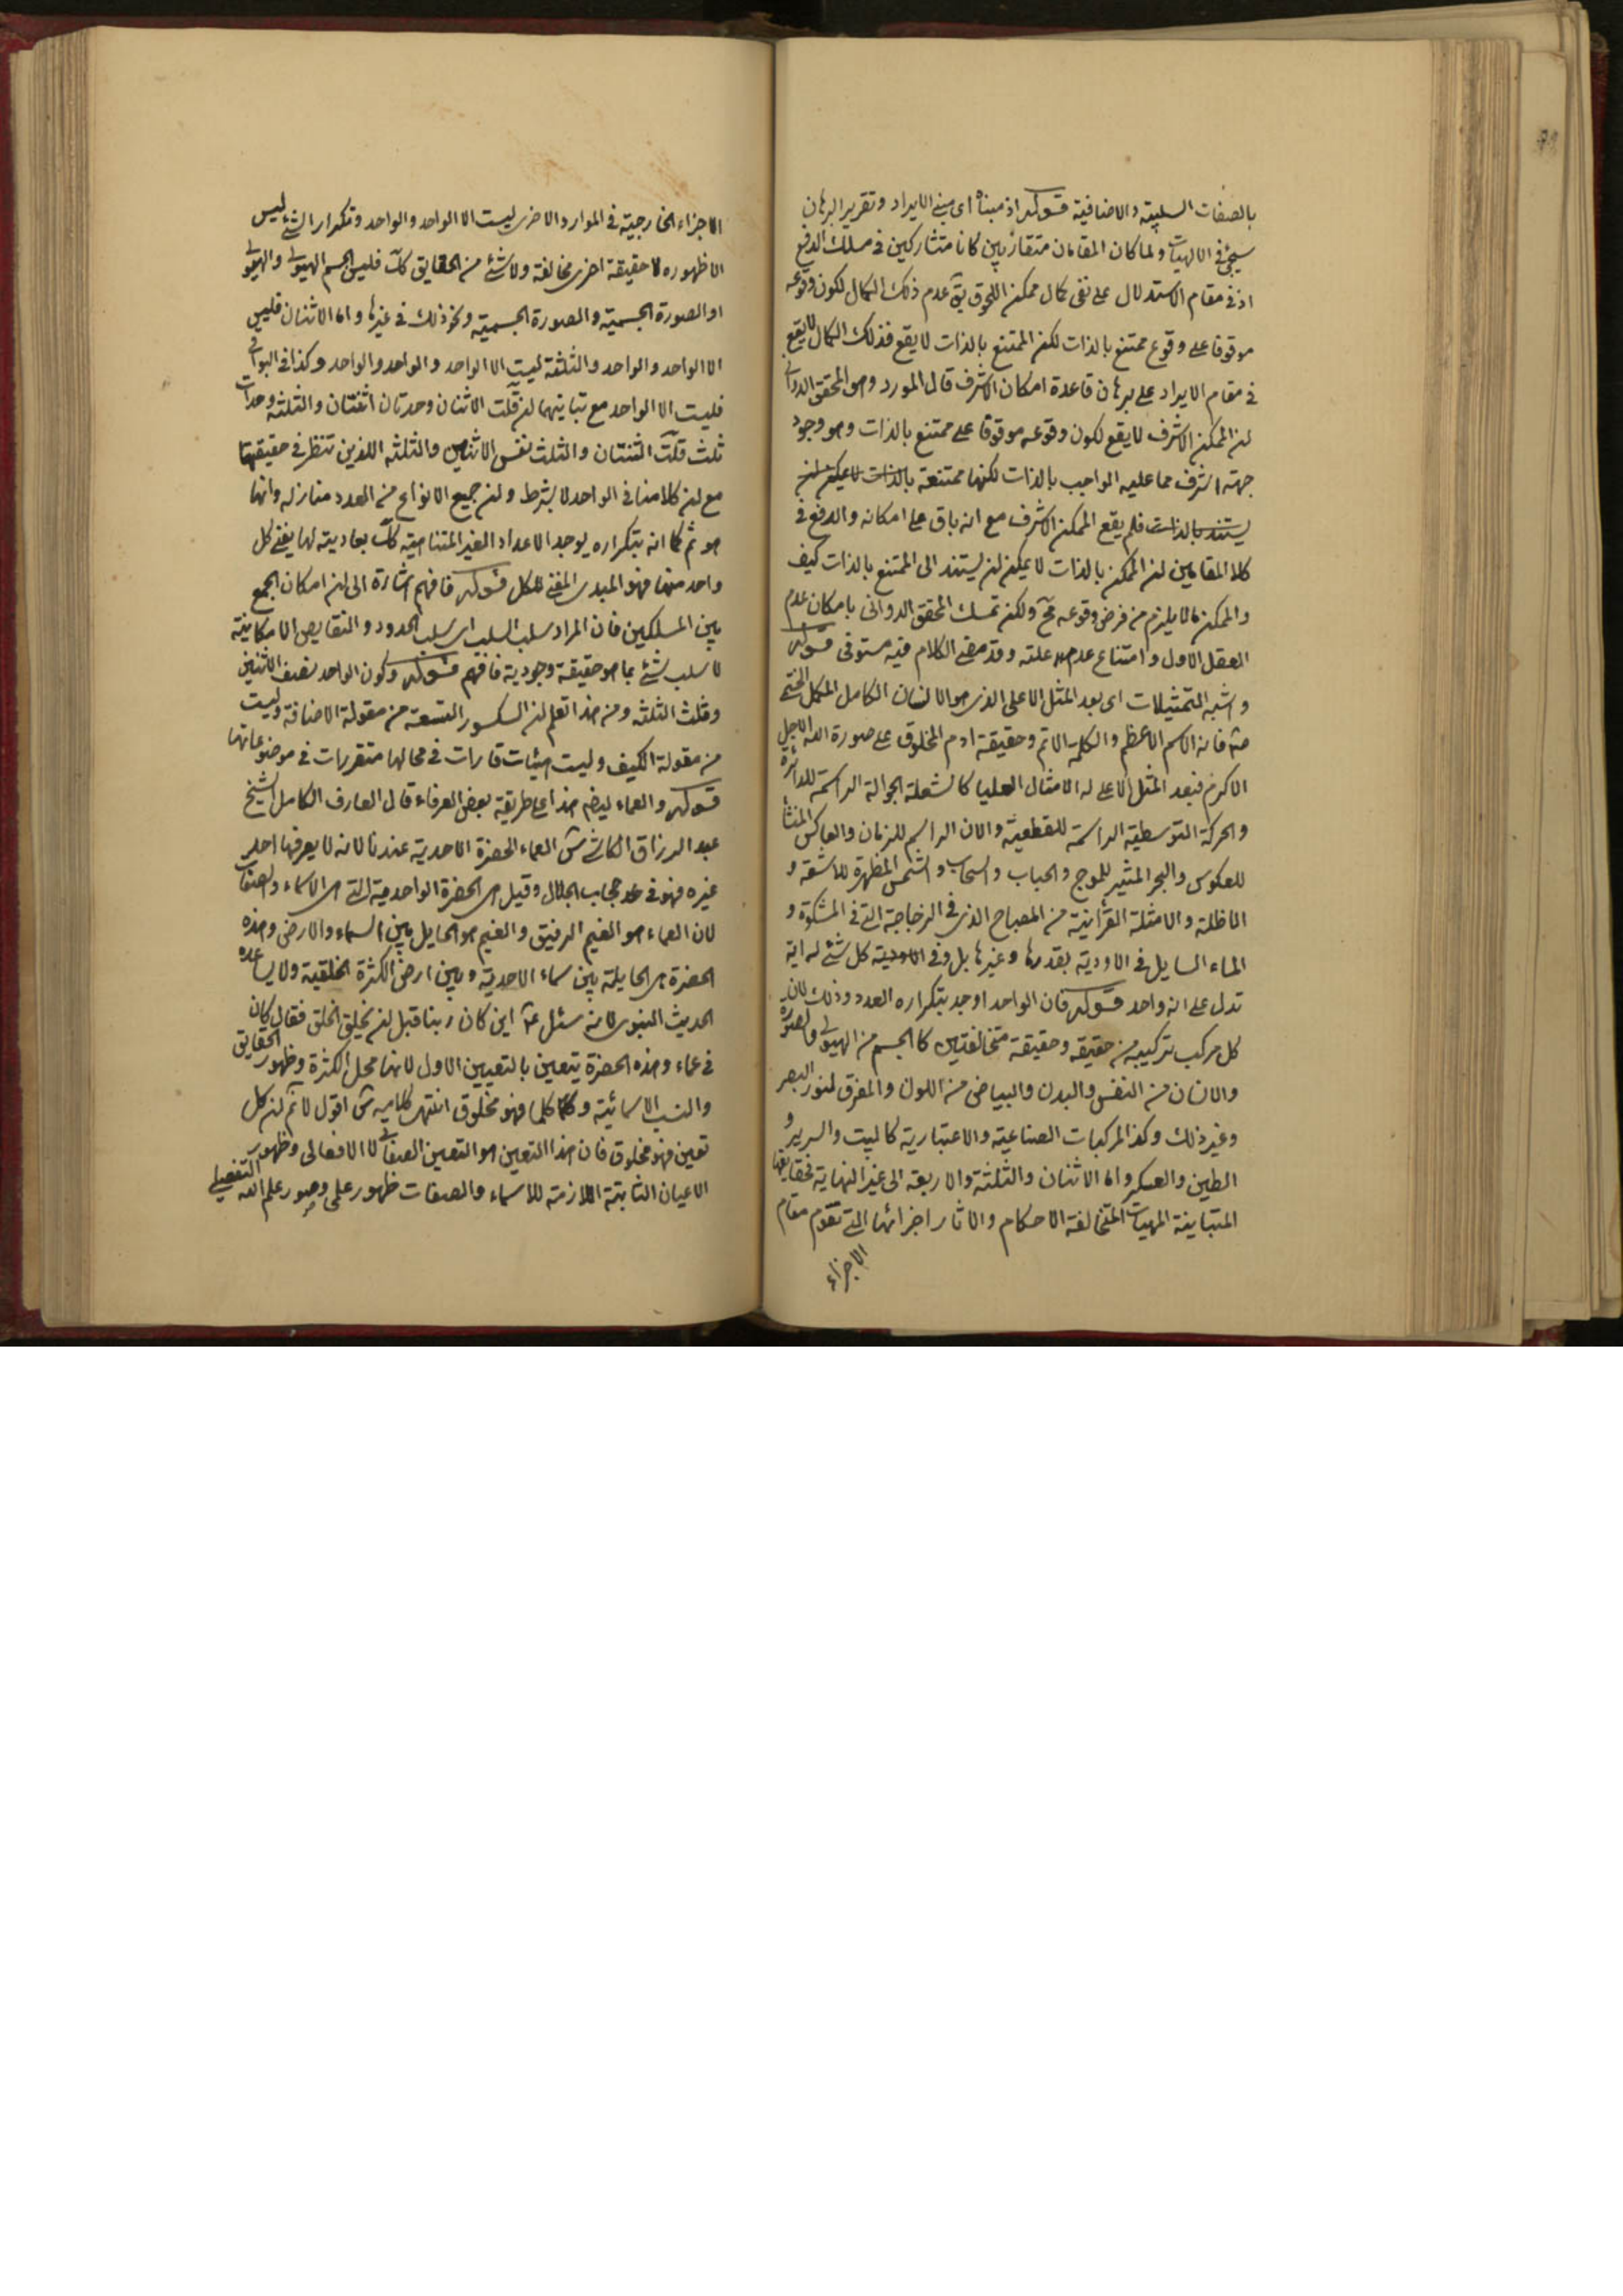 بالصفات السلبية والاضافية قوله اذ مبناه اى مبنى الايراد وتقرير البرهان
سيجئ فى الالهيات ولما كان المقامان متقاربين كانا متشاركين فى مسلك الدفع
اذ فى مقام الاستدلال على نفى كمال ممكن اللحوق يق عدم ذلك الكمال لكون وقوعه
موقوفا على وقوع ممتنع بالذات لكن الممتنع بالذات لا يقع فذلك الكمال لا يقع
فى مقام الايراد على برهان قاعدة امكان الاشرف قال المورد وهو المحقق الدوانى
ان الممكن الاشرف لا يقع لكون وقوعه موقوفا على ممتنع بالذات وهو وجود
جهة اشرف مما عليه الواجب بالذات لكنها ممتنعة بالذات لا يمكن ان
يستند بالذات فلم يقع الممكن الاشرف مع انه باق على امكانه والدفع فى
كلا المقامين ان الممكن بالذات لا يمكن ان يستند الى الممتنع بالذات كيف
والممكن ما لا يلزم من فرض وقوعه مح ولكن تمسك المحقق الدوانى بامكان عدم
العقل الاول وامتناع عدم علته وقد مضى الكلام فيه مستوفى قوله
واشبه التمثيلات اى بعد المثل الاعلى الذى هو الانسان الكامل المكمل الختمى
فانه الاسم الاعظم والكلمة الاتم وحقيقة ادم المخلوق على صورة الله الاجل
الاكرم فبعد المثل الاعلى له الامثال العليا كالشعلة الجوالة الراسمة للدائرة
والحركة التوسطية الراسمة للقطعية والان الراسم للزمان والعاكس المنشأ
للعكوس والبحر المثير للموج والحباب والسحاب والشمس المظهرة للاشعة و
الاظلة والامثلة القرآنية من المصباح الذى فى الزجاجة التى فى المشكوة و
الماء السايل فى الاودية بقدرها وغيرها بل وفى كل شئ له اية
تدل على انه واحد قوله فان الواحد اوجد بتكراره العدد وذلك لان
كل مركب تركيبه من حقيقة وحقيقة متخالفتين كالجسم من الهيولى والصورة
والانسان من النفس والبدن والبياض من اللون والمفرق لنور البصر
وغير ذلك وكذا المركبات الصناعية والاعتبارية كالبيت والسرير و
الطين والعسكر واما الاثنان والثلثة والاربعة الى غير النهاية فحقايقها
المتباينة المهيات المتخالفة الاحكام والاثار اجزائها التى تقوم مقام
الاجزاء
الاجزاء الخارجية فى الموارد الاخرى ليست الا الواحد والواحد وتكرار الشئ ليس
الا ظهوره لا حقيقة اخرى مخالفة ولا شئ من الحقايق كك فليس الجسم الهيولى والهيولى
او الصورة الجسمية والصورة الجسمية ونحو ذلك فى غيرها واما الاثنان فليس
الا الواحد والواحد والثلثة ليست الا الواحد والواحد والواحد وكذا فى البواقى
فليست الا الواحد مع تباينهما ان قلت الاثنان وحدتان اثنتان والثلثة وحدات
ثلث قلت الثنتان والثلث نفس الاثنين والثلثة اللذين ننظر فى حقيقتهما
مع ان كلامنا فى الواحد لا بشرط وان جميع الانواع من العدد منازله وانها
هو ثم كما انه بتكراره يوجد الاعداد الغير المتناهية كك بعاديته لها يفنى كل
واحد منها فهو المبدى المفنى للكل قوله فافهم اشارة الى ان امكان الجمع
بين المسلكين فان المراد سلب السلب اى سلب الحدود والنقايص الامكانية
لا سلب شئ بما هو حقيقة وجودية فافهم قوله وكون الواحد نصف الاثنين
وثلث الثلثة ومن هذا تعلم ان الكسور التسعة من مقولة الاضافة وليست
من مقولة الكيف وليست هيئات قارات فى محالها متقررات فى موضوعاتها
قوله والعماء هذا على طريقة بعض العرفاء قال العارف الكامل الشيخ
عبد الرزاق الكاشى العماء الحضرة الاحدية عندنا لانه لا يعرفها احد
غيره فهو فى حجاب الجلال وقيل هى الحضرة الواحدية التى هى الاسماء والصفات
لان العماء هو الغيم الرقيق والغيم هو الحايل بين السماء والارض وهذه
الحضرة هى الحايلة بين سماء الاحدية وبين ارض الكثرة الخلقية ولا يساعده
الحديث النبوى لانه سئل عنه اين كان ربنا قبل ان يخلق الخلق فقال كان
فى عماء وهذه الحضرة يتعين بالتعيين الاول لانها محل الكثرة وظهور الحقايق
والنسب الاسمائية وكلما فهو مخلوق انتهى كلامه اقول لا نم ان كل
تعين فهو مخلوق فان هذا التعين هو التعين الصفاتى لا الافعالى وظهور
الاعيان الثابتة اللازمة للاسماء والصفات ظهور علمى وصور علم الله التفصيلى